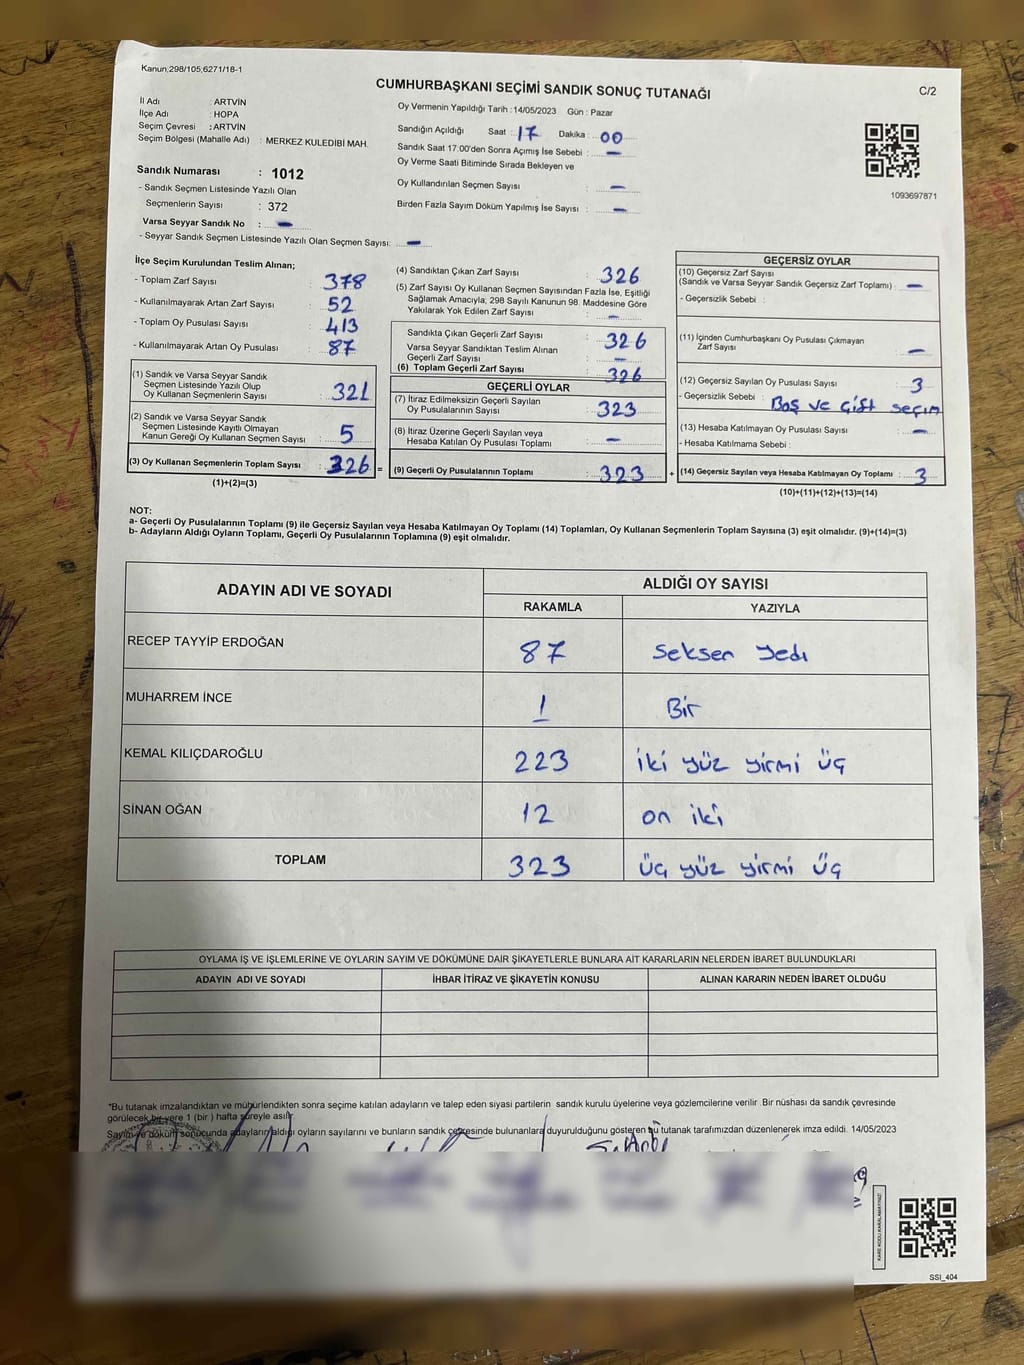 Kanun,298/105,6271/18-1
CUMHURBAŞKANI SEÇİMİ SANDIK SONUÇ TUTANAĞI
C/2
İl Adı : ARTVİN
İlçe Adı : HOPA
Seçim Çevresi : ARTVİN
Seçim Bölgesi (Mahalle Adı) : MERKEZ KULEDİBİ MAH.
Oy Vermenin Yapıldığı Tarih : 14/05/2023 Gün : Pazar
Sandığın Açıldığı Saat : 17 Dakika : 00
Sandık Saat 17:00'den Sonra Açımış İse Sebebi : —
Oy Verme Saati Bitiminde Sırada Bekleyen ve
Oy Kullandırılan Seçmen Sayısı : —
Birden Fazla Sayım Döküm Yapılmış İse Sayısı : —
1093697871
Sandık Numarası : 1012
- Sandık Seçmen Listesinde Yazılı Olan
Seçmenlerin Sayısı : 372
Varsa Seyyar Sandık No : —
- Seyyar Sandık Seçmen Listesinde Yazılı Olan Seçmen Sayısı: —
İlçe Seçim Kurulundan Teslim Alınan;
- Toplam Zarf Sayısı : 378
- Kullanılmayarak Artan Zarf Sayısı : 52
- Toplam Oy Pusulası Sayısı : 413
- Kullanılmayarak Artan Oy Pusulası : 87
(1) Sandık ve Varsa Seyyar Sandık
Seçmen Listesinde Yazılı Olup
Oy Kullanan Seçmenlerin Sayısı : 321
(2) Sandık ve Varsa Seyyar Sandık
Seçmen Listesinde Kayıtlı Olmayan
Kanun Gereği Oy Kullanan Seçmen Sayısı : 5
(3) Oy Kullanan Seçmenlerin Toplam Sayısı : 326 =
(1)+(2)=(3)
(4) Sandıktan Çıkan Zarf Sayısı : 326
(5) Zarf Sayısı Oy Kullanan Seçmen Sayısından Fazla İse, Eşitliği
Sağlamak Amacıyla; 298 Sayılı Kanunun 98. Maddesine Göre
Yakılarak Yok Edilen Zarf Sayısı : —
Sandıkta Çıkan Geçerli Zarf Sayısı : 326
Varsa Seyyar Sandıktan Teslim Alınan
Geçerli Zarf Sayısı : —
(6) Toplam Geçerli Zarf Sayısı : 326
GEÇERLİ OYLAR
(7) İtiraz Edilmeksizin Geçerli Sayılan
Oy Pusulalarının Sayısı : 323
(8) İtiraz Üzerine Geçerli Sayılan veya
Hesaba Katılan Oy Pusulası Toplamı : —
(9) Geçerli Oy Pusulalarının Toplamı : 323 +
GEÇERSİZ OYLAR
(10) Geçersiz Zarf Sayısı
(Sandık ve Varsa Seyyar Sandık Geçersiz Zarf Toplamı) : —
- Geçersizlik Sebebi :
(11) İçinden Cumhurbaşkanı Oy Pusulası Çıkmayan
Zarf Sayısı : —
(12) Geçersiz Sayılan Oy Pusulası Sayısı : 3
- Geçersizlik Sebebi : Boş ve çift seçim
(13) Hesaba Katılmayan Oy Pusulası Sayısı : —
- Hesaba Katılmama Sebebi :
(14) Geçersiz Sayılan veya Hesaba Katılmayan Oy Toplamı : 3
(10)+(11)+(12)+(13)=(14)
NOT:
a- Geçerli Oy Pusulalarının Toplamı (9) ile Geçersiz Sayılan veya Hesaba Katılmayan Oy Toplamı (14) Toplamları, Oy Kullanan Seçmenlerin Toplam Sayısına (3) eşit olmalıdır. (9)+(14)=(3)
b- Adayların Aldığı Oyların Toplamı, Geçerli Oy Pusulalarının Toplamına (9) eşit olmalıdır.
ADAYIN ADI VE SOYADI
ALDIĞI OY SAYISI
RAKAMLA YAZIYLA
RECEP TAYYİP ERDOĞAN 87 Seksen yedi
MUHARREM İNCE 1 Bir
KEMAL KILIÇDAROĞLU 223 iki yüz yirmi üç
SİNAN OĞAN 12 on iki
TOPLAM 323 üç yüz yirmi üç
OYLAMA İŞ VE İŞLEMLERİNE VE OYLARIN SAYIM VE DÖKÜMÜNE DAİR ŞİKAYETLERLE BUNLARA AİT KARARLARIN NELERDEN İBARET BULUNDUKLARI
ADAYIN ADI VE SOYADI İHBAR İTİRAZ VE ŞİKAYETİN KONUSU ALINAN KARARIN NEDEN İBARET OLDUĞU
*Bu tutanak imzalandıktan ve mühürlendikten sonra seçime katılan adayların ve talep eden siyasi partilerin sandık kurulu üyelerine veya gözlemcilerine verilir. Bir nüshası da sandık çevresinde
görülecek bir yere 1 (bir ) hafta süreyle asılır.
Sayım ve döküm sonucunda adayların aldığı oyların sayılarını ve bunların sandık çevresinde bulunanlara duyurulduğunu gösteren bu tutanak tarafımızdan düzenlenerek imza edildi. 14/05/2023
KARE KODU KARALAMAYINIZ!
SSI_404